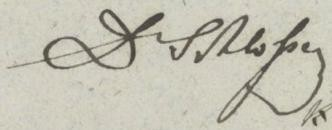 Dr Schlosser